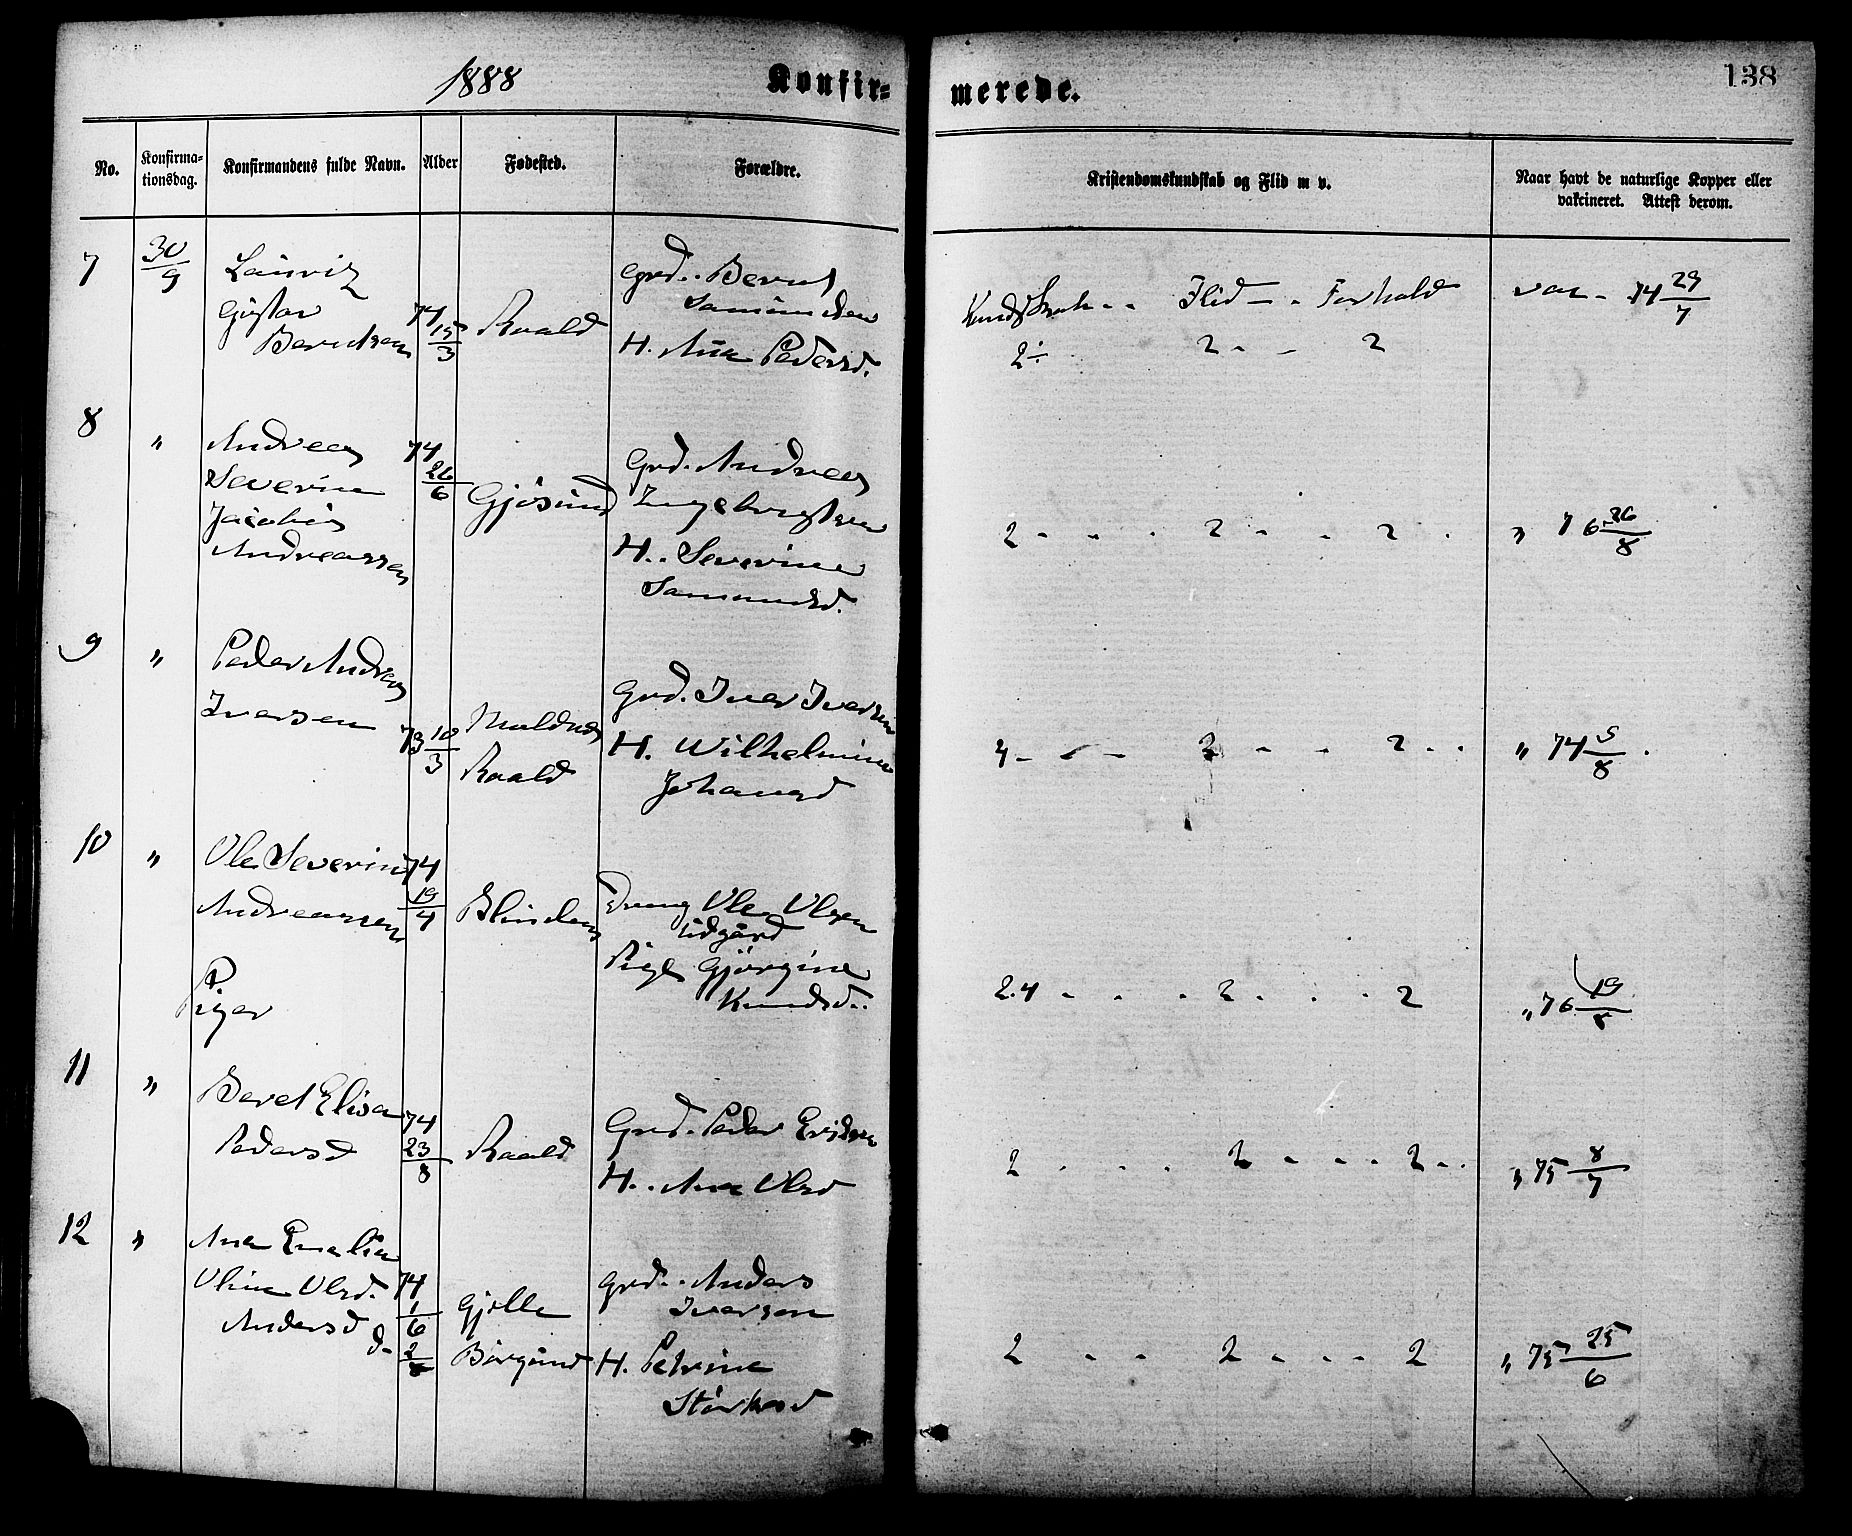 1888
Konfir=
merede.
138
No.
Konfirma-
tionsdag.
Konfirmandens fulde Navn.
Alder
Fødested.
Forældre.
Kristendomskundskab og Flid m v.
Naar havt de naturlige Kopper eller
vakcineret. Attest derom.
7
30/9
Lauritz
Gustav
Berntsen
74
15/3
Roald
Grd. Bernt
H. Ana Pedersd.
Kundskab - - Flid - - Forhold
2÷ 2 - - 2
vac - 74 29/7
8
"
Andreas
Severin
Jacobus
Andreassen
74
26/6
Gjøsund
Grd. Andreas
Ingebrigtsen
H. Severine
Samundsd.
2 - - - 2 - - 2 -
" 76 26/8
9
"
Peder Andreas
Iversen
73 10/3
Roald
Grd. Iver Iversen
H. Wilhelmine
Johansd
- - - 2 - - 2 - -
" 74 5/8
10
"
Ole Severin
Andreassen
74
19/4
Blindem
Ole Olsen
Pige Gjørgine
Knudsd.
2.4 - - - 2 - - - 2
" 76 19/8
Piger
11
"
Beret Elisa
Pedersd
74
23/8
Roald
Grd. Peder Eriksen
H. Ana Olsd
2 - - - 2 - - - 2 - -
" 75 8/7
12
"
Ana Emalia
Oline Olsd.
Andersd
74
1/6
d.
Gjølle
Borgund
Grd. Anders
Iversen
H. Petrine
2 - - 2 - - - 2
" 75 25/6